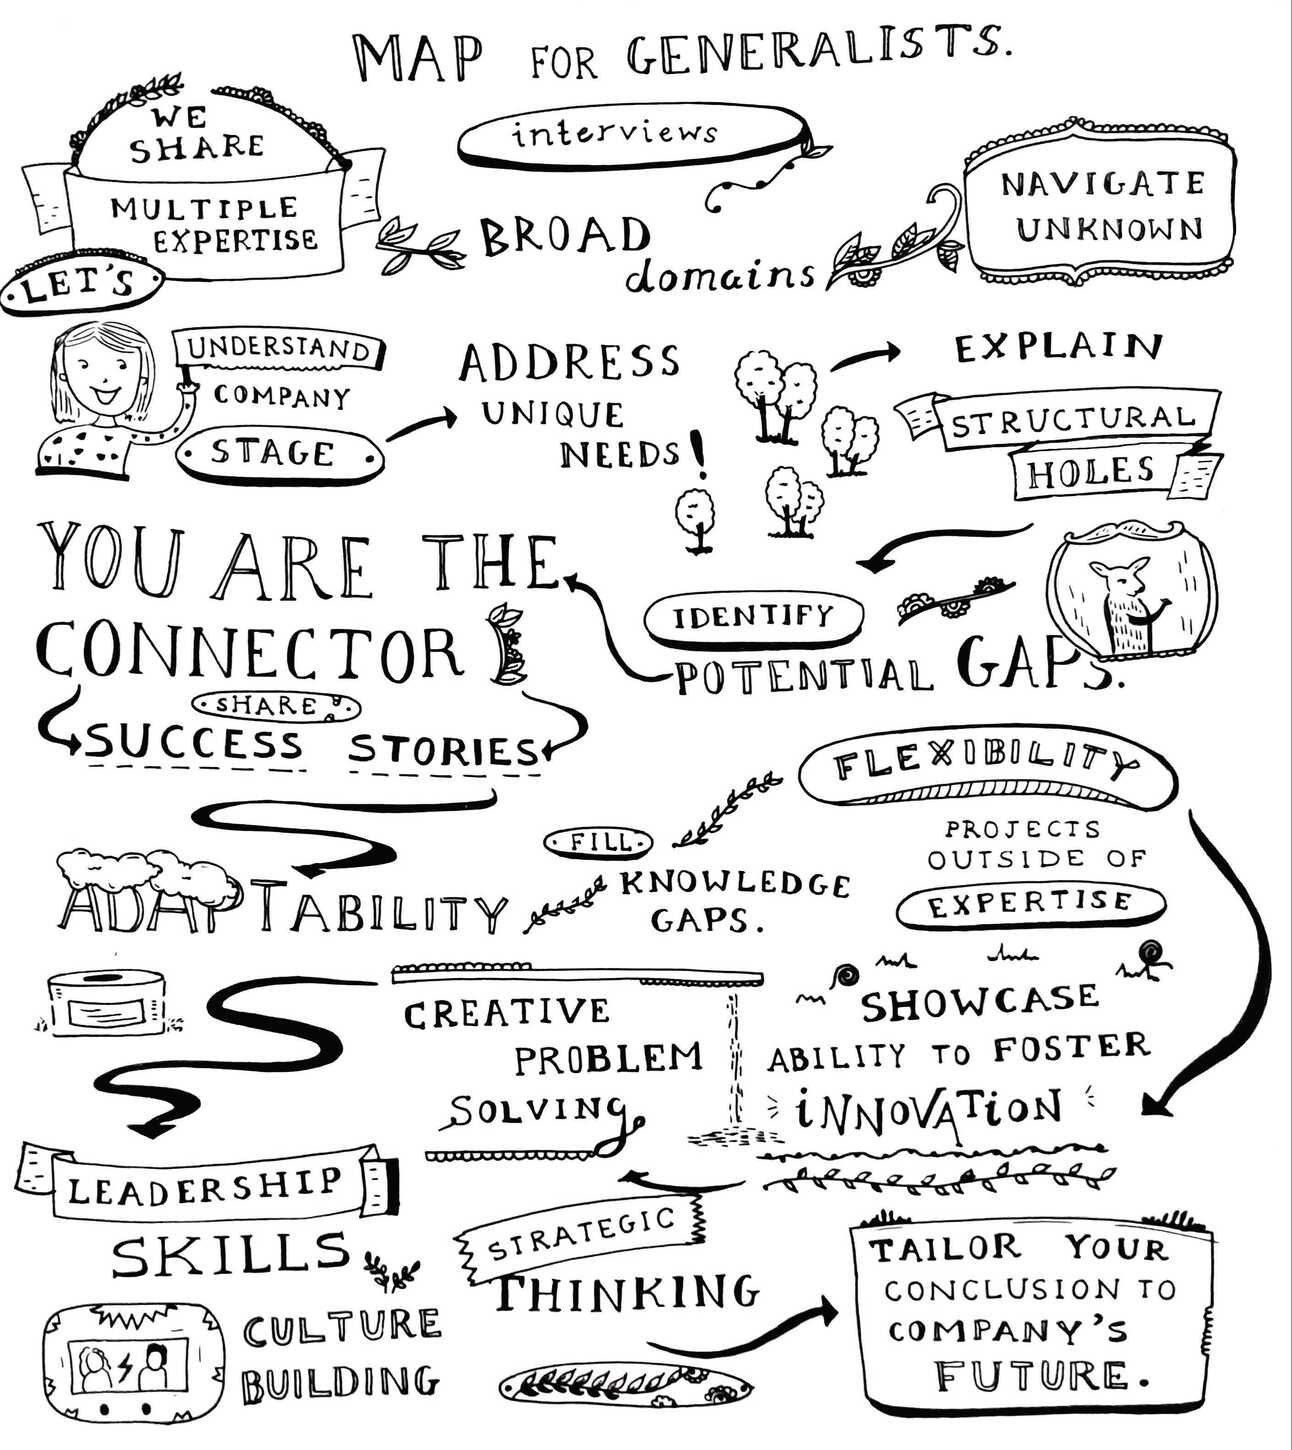 MAP FOR GENERALISTS.
WE
SHARE
MULTIPLE
EXPERTISE
LET'S
interviews
BROAD
domains
NAVIGATE
UNKNOWN
UNDERSTAND
COMPANY
STAGE
ADDRESS
UNIQUE
NEEDS!
EXPLAIN
STRUCTURAL
HOLES
IDENTIFY
POTENTIAL GAPS.
YOU ARE THE
CONNECTOR
SHARE
SUCCESS STORIES
ADAPTABILITY
FILL
KNOWLEDGE
GAPS.
FLEXIBILITY
PROJECTS
OUTSIDE OF
EXPERTISE
CREATIVE
PROBLEM
SOLVING
SHOWCASE
ABILITY TO FOSTER
iNNOVATiON
LEADERSHIP
SKILLS
CULTURE
BUILDING
STRATEGIC
THINKING
TAILOR YOUR
CONCLUSION TO
COMPANY'S
FUTURE.